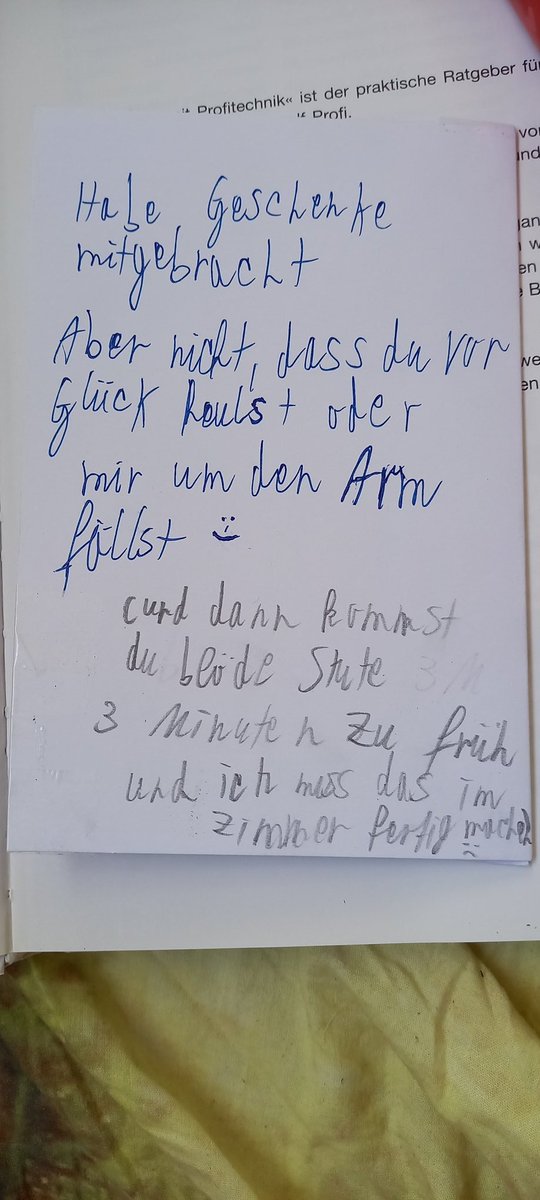 Profitechnik« ist der praktische Ratgeber für
Profi.
Habe Geschenke
mitgebracht
Aber nicht, dass du vor
Glück heulst oder
mir um den Arm
fällst :)
(und dann kommst
du blöde Stute
3 Minuten zu früh
und ich muss das im
Zimmer fertig machen
:(